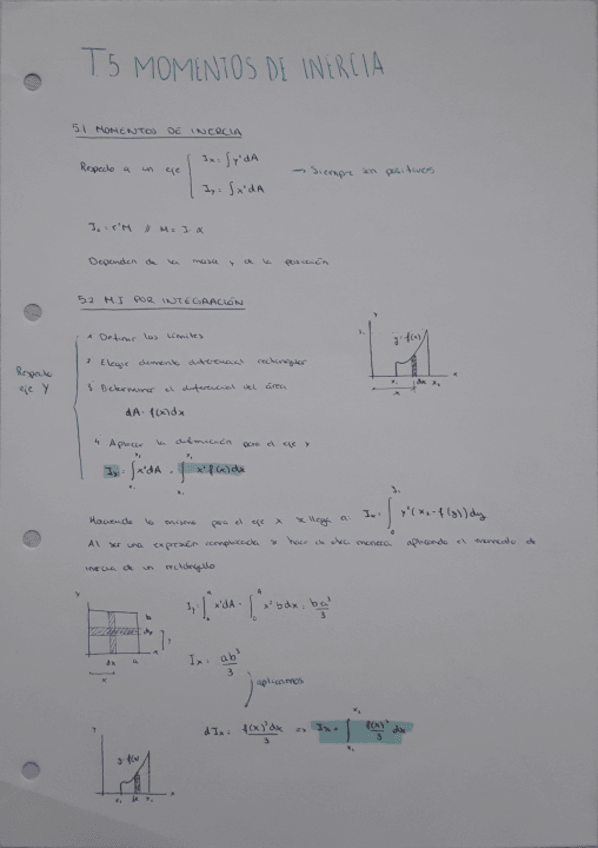 T5 MOMENTOS DE INERCIA
5.1 MOMENTOS DE INERCIA
Respecto a un eje { Ix = ∫y²dA
Iy = ∫x²dA
→ Siempre son positivos
I₀ = r²M // M = I·α
Dependen de la masa y de la posición
5.2 M.I POR INTEGRACIÓN
Respecto
eje Y
1º Definir los límites
2º Elegir elemento diferencial rectangular
3º Determinar el diferencial del área
dA = f(x)dx
4º Aplicar la definición para el eje y
Iy = ∫x²dA = ∫x²f(x)dx
x₁ x₂ x₁ x₂
y
y₁
y = f(x)
x₁ dx x₂ x
x
Haciendo lo mismo para el eje x se llega a: Ix = ∫₀^y₁ y²(x₂ - f(y))dy
Al ser una expresión complicada se hace de otra manera aplicando el momento de
inercia de un rectángulo
y
b
dy
y
dx a x
x
Iy = ∫₀^a x²dA = ∫₀^a x²bdx = ba³/3
Ix = ab³/3
aplicamos
dIx = f(x)³dx/3 => Ix = ∫x₁^x₂ f(x)³/3 dx
y
y = f(x)
x₁ dx x₂ x